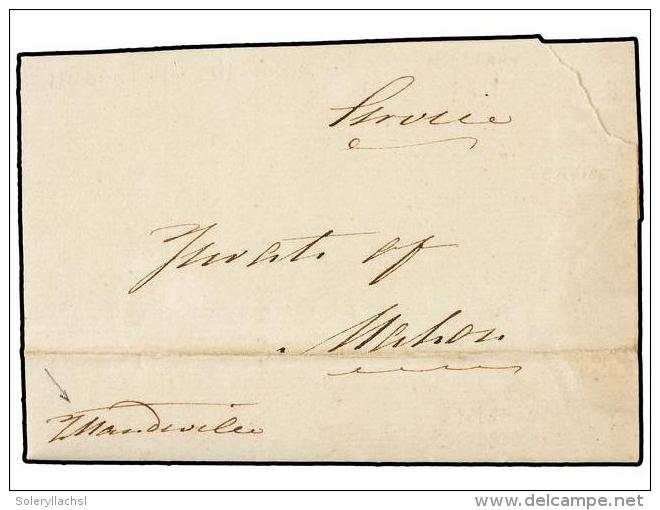 Service
Jurats of
Mahon
Mandeville
Soleryllachsl
delcampe.net